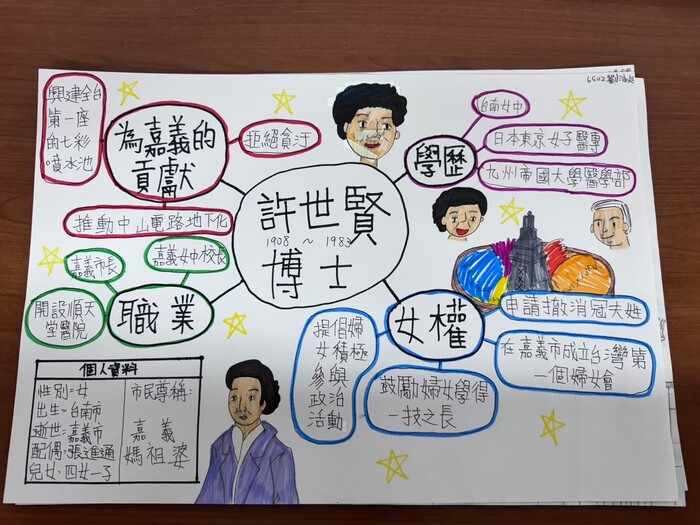 許世賢
1908 ~ 1983
博士
為嘉義的
貢獻
興建全台
第一座
的七彩
噴水池
拒絕貪汙
推動中山電路地下化
學歷
台南女中
日本東京女子醫專
九州帝國大學醫學部
職業
嘉義市長
嘉義女中校長
開設順天
堂醫院
女權
申請撤消冠夫姓
在嘉義市成立台灣第
一個婦女會
鼓勵婦女學得
一技之長
提倡婦
女積極
參與
政治
活動
個人資料
性別=女
出生=台南市
逝世:嘉義市
配偶:張進通
兒女:四女一子
市民尊稱:
嘉義
媽祖婆